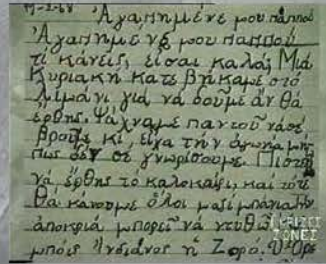 17-2-68 Ἀγαπημένε μου παππού
Ἀγαπημένε μου παππού
τί κάνεις, εἶσαι καλά; Μιά
Κυριακή κατεβήκαμε στό
λιμάνι, γιά νά δοῦμε ἄν θά
ἔρθης. Ψάχναμε παντοῦ νά σέ
βροῦμε κι, εἶχα τήν ἀγωνία μή-
πως δέν σέ γνωρίσουμε.
νά ἔρθης τό καλοκαίρι, καί τότε
θά κάνουμε ὅλοι μαζί μπάνια. Τήν
ἀποκριά μπορεῖ νά ντυθῶ
μπόις Ἰνδιάνος ἤ Ζορό. Ὁ
ΖΩΝΕΣ